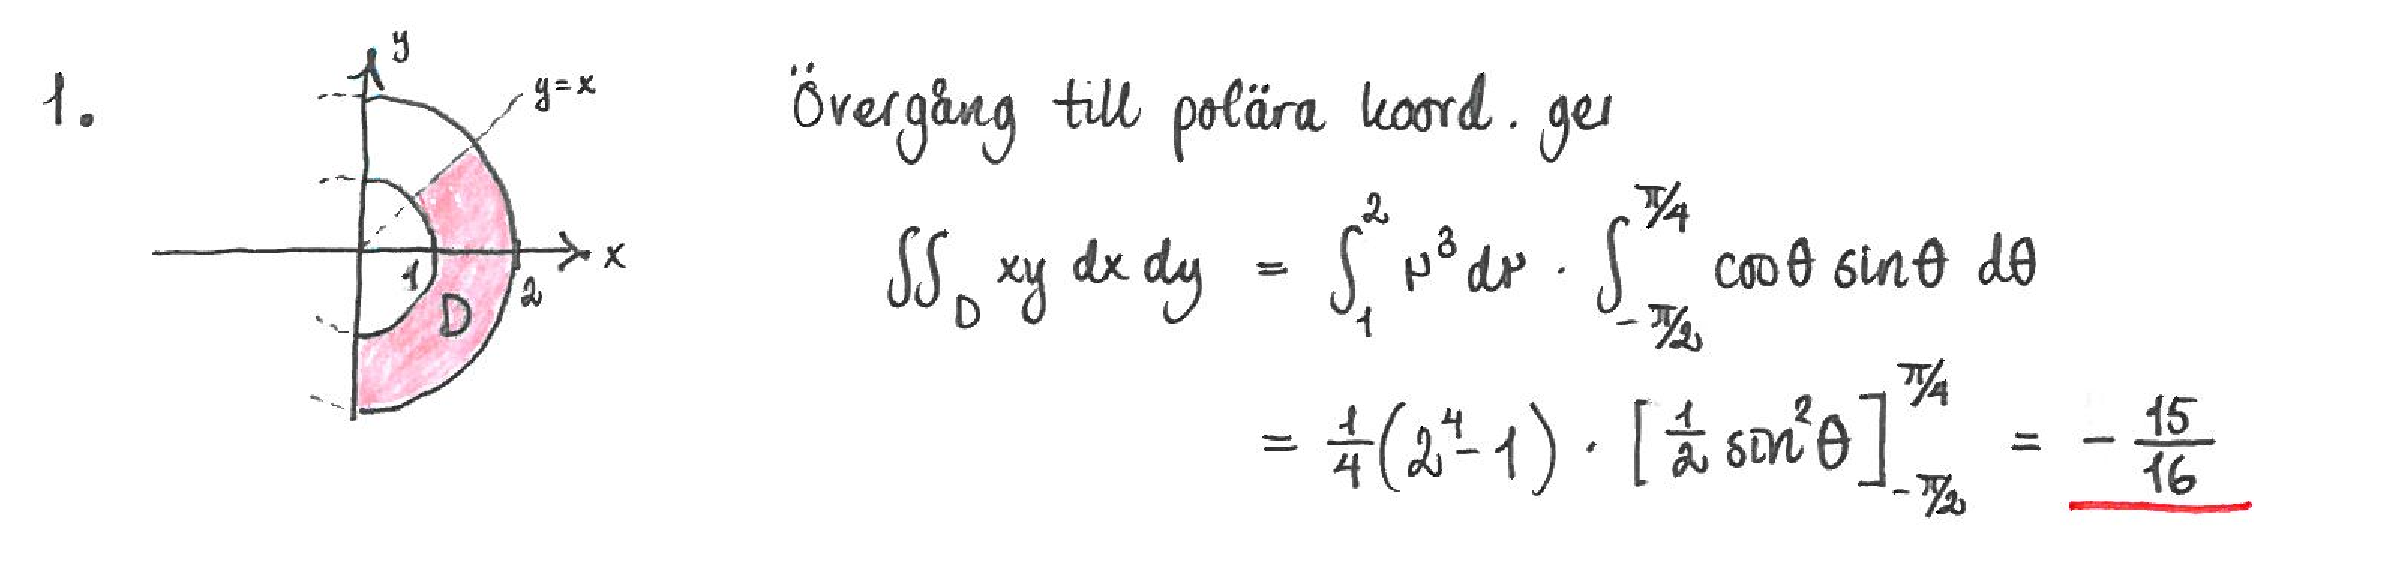 1.
y
y=x
x
1
2
D
Övergång till polära koord. ger
∬_D xy dx dy = ∫_1^2 r³ dr · ∫_{-π/2}^{π/4} cosθ sinθ dθ
= 1/4 (2⁴-1) · [1/2 sin²θ]_{-π/2}^{π/4} = - 15/16